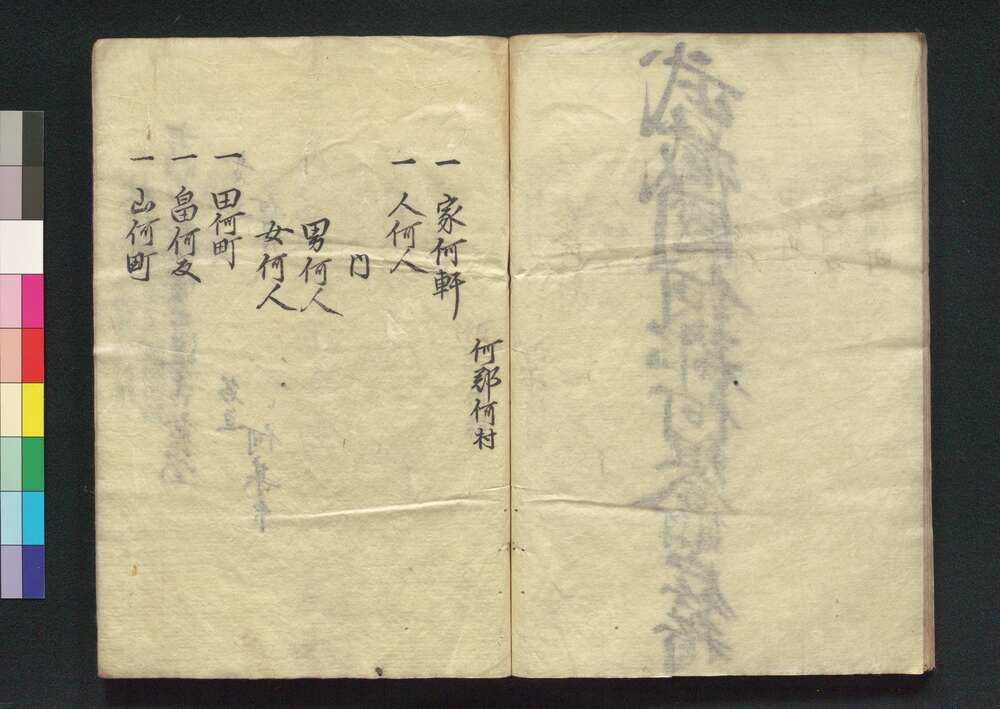 何郡何村
一 家何軒
一 人何人
内
男何人
女何人
一 田何町
一 畠何反
一 山何町